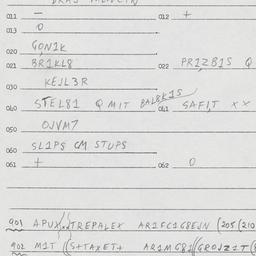 011 — 012 +
013 0
020 GON1K
021 BR1KL8 022 PR1ZB1S Q
030 KEJL3R
040 STEL81 Q MIT BALBK1S 041 SAF1T XX
050 OJVM7
060 SL1PS CM STUPS
061 + 062 0
901 APUX TREPALEX AR1FC1G8EJN (205 (210
902 M1T (S+TAXET+ AR1MG81 (GROJZ1T (8